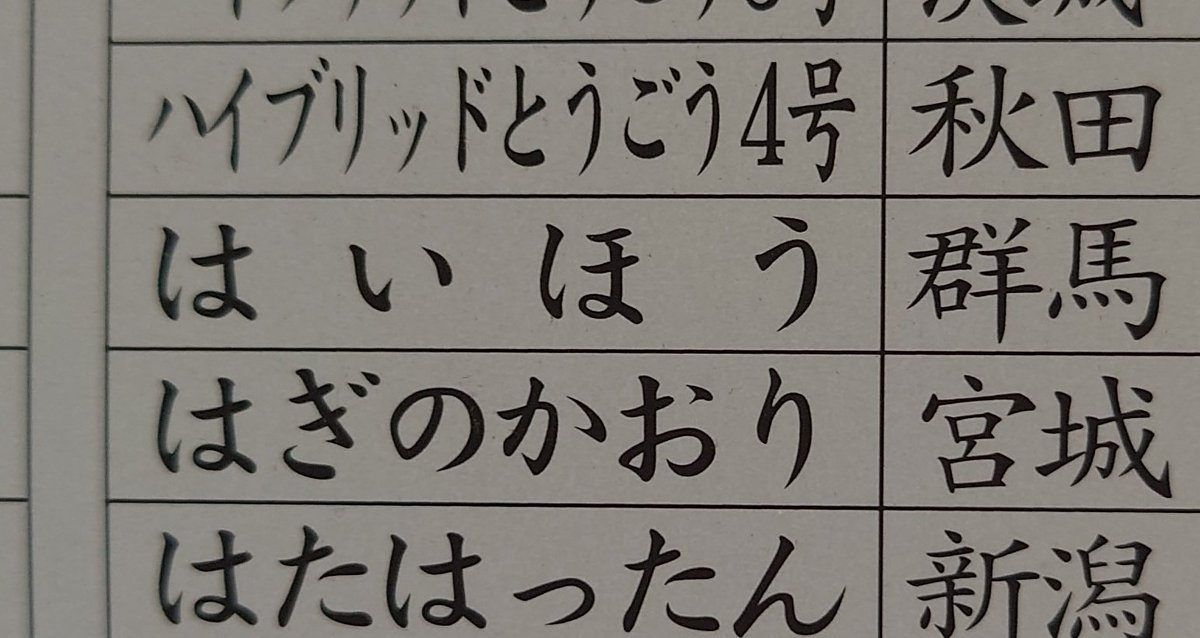 ハイブリッドとうごう4号 秋田
はいほう 群馬
はぎのかおり 宮城
はたはったん 新潟